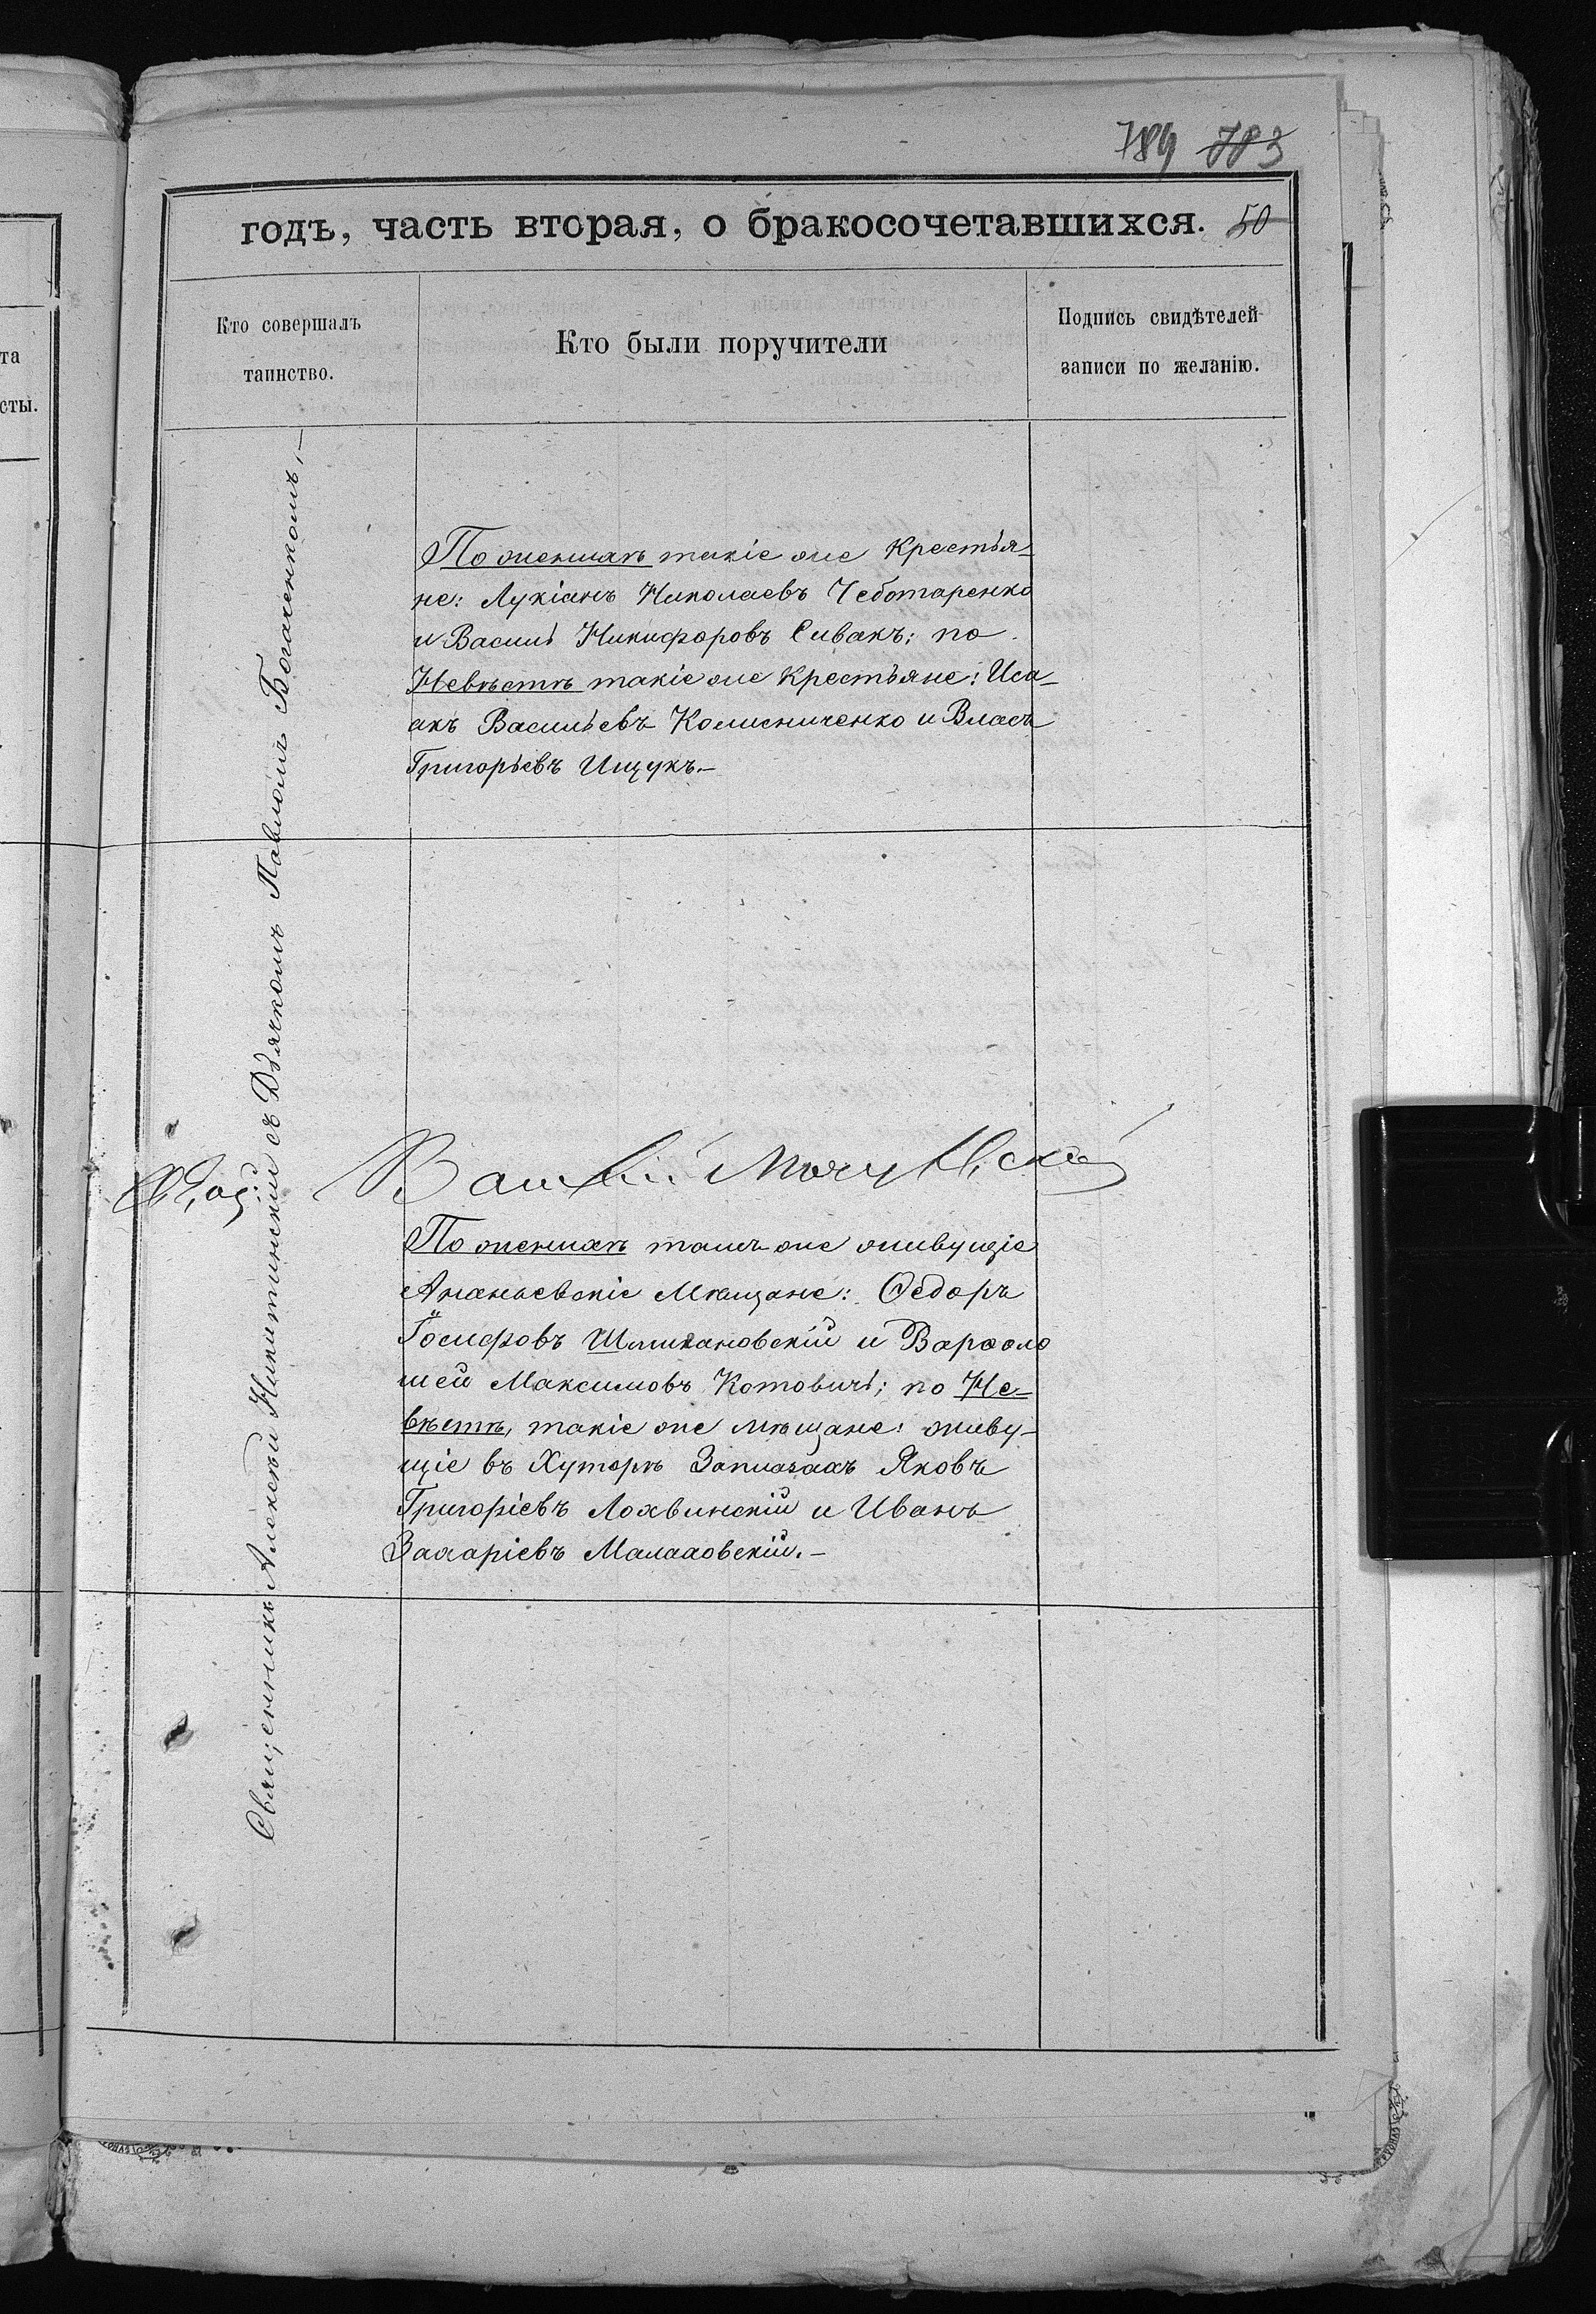 789 783
годъ, часть вторая, о бракосочетавшихся. 50
Кто совершалъ
таинство.
Кто были поручители
Подпись свидѣтелей
записи по желанію.
та
сты.
Священникъ Алексѣй Никитинскій съ Дьячкомъ Павломъ Боженкомъ,–
По женихѣ такіе же Крестья-
не: Лукіанъ Николаевъ Чеботаренко
и Василь Никифоровъ Сивакъ: по
Невѣстѣ такіе же Крестьяне: Иса-
акъ Васильевъ Колисниченко и Власъ
Григорьевъ Ищукъ.–
По женихѣ тамъ же живущіе
Ананьевскіе Мѣщане: Ѳедоръ
Іосифовъ Шлихановскій и Варѳоло
мей Максимовъ Котовичъ; по Не-
вѣстѣ, такіе же мѣщане: живу-
щіе въ Хуторѣ Яковъ
Григоріевъ Лохвинскій и Иванъ
Захаріевъ Малаховскій.–